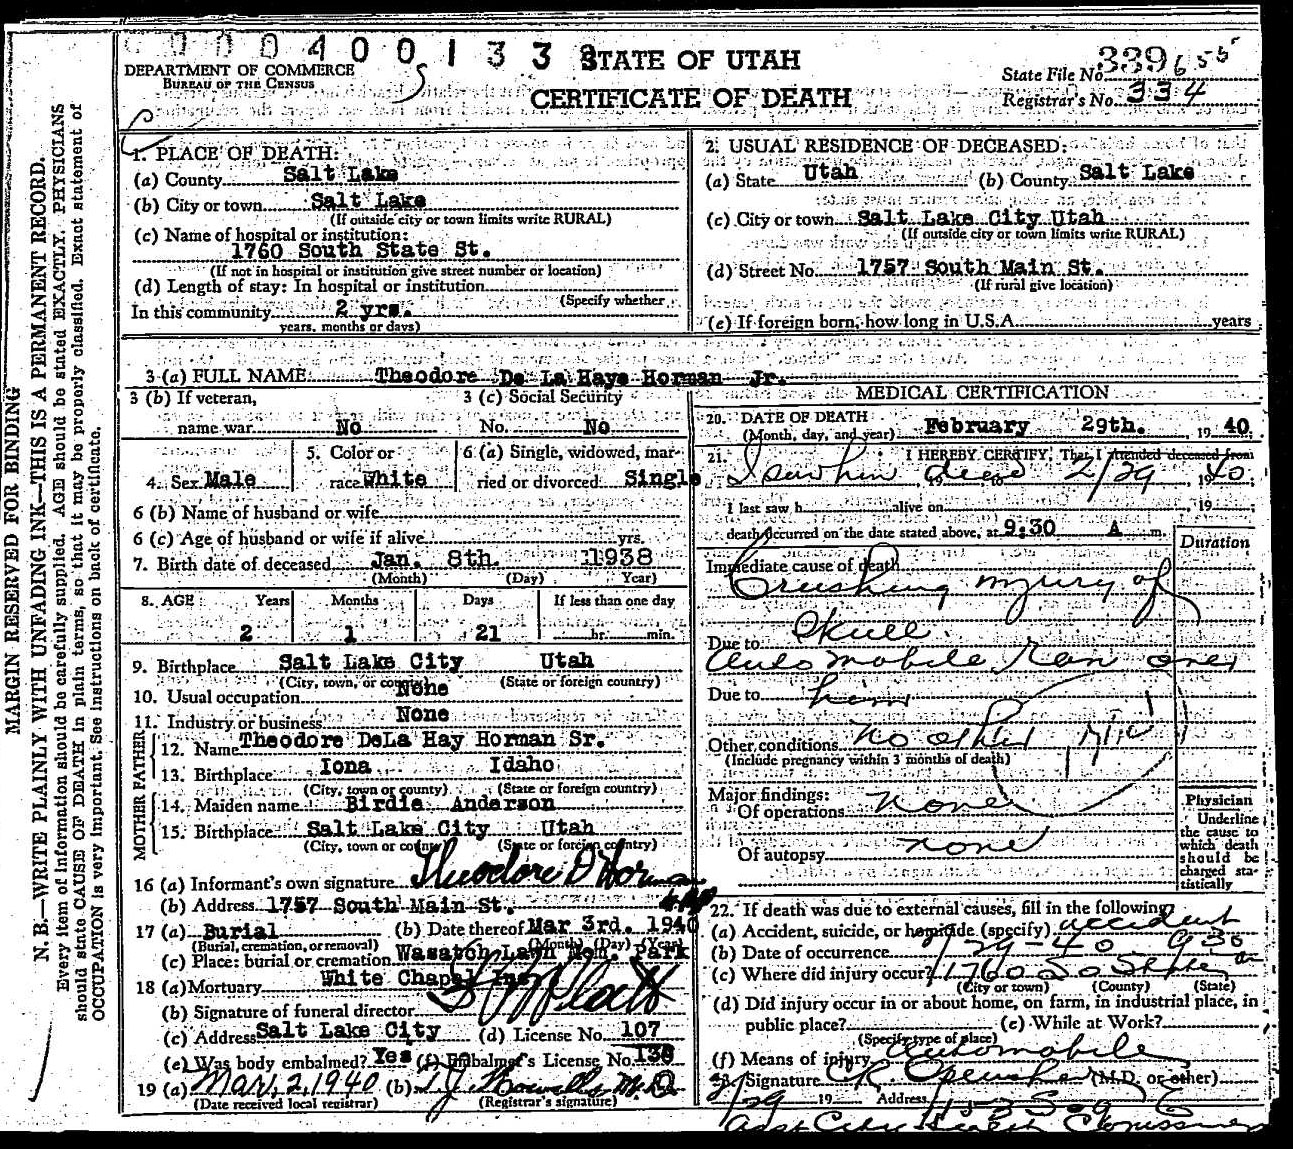 00040013 3
STATE OF UTAH
DEPARTMENT OF COMMERCE
BUREAU OF THE CENSUS
CERTIFICATE OF DEATH
State File No. 339 655
Registrar's No. 334
MARGIN RESERVED FOR BINDING
N. B.—WRITE PLAINLY WITH UNFADING INK—THIS IS A PERMANENT RECORD.
Every item of information should be carefully supplied. AGE should be stated EXACTLY. PHYSICIANS
should state CAUSE OF DEATH in plain terms, so that it may be properly classified. Exact statement of
OCCUPATION is very important. See instructions on back of certificate.
1. PLACE OF DEATH:
(a) County Salt Lake
(b) City or town Salt Lake
(If outside city or town limits write RURAL)
(c) Name of hospital or institution:
1760 South State St.
(If not in hospital or institution give street number or location)
(d) Length of stay: In hospital or institution
(Specify whether
In this community 2 yrs.
years, months or days)
2. USUAL RESIDENCE OF DECEASED:
(a) State Utah (b) County Salt Lake
(c) City or town Salt Lake City Utah
(If outside city or town limits write RURAL)
(d) Street No. 1757 South Main St.
(If rural give location)
(e) If foreign born, how long in U.S.A. years
3 (a) FULL NAME Theodore De La Haye Horman Jr.
3 (b) If veteran, name war No
3 (c) Social Security No. No
4. Sex Male
5. Color or race White
6 (a) Single, widowed, married or divorced Single
6 (b) Name of husband or wife
6 (c) Age of husband or wife if alive yrs.
7. Birth date of deceased Jan. 8th. 1938
(Month) (Day) Year)
8. AGE Years Months Days If less than one day
2 1 21 hr. min.
9. Birthplace Salt Lake City Utah
(City, town, or county) (State or foreign country)
10. Usual occupation None
11. Industry or business None
FATHER
12. Name Theodore DeLa Hay Horman Sr.
13. Birthplace Iona Idaho
(City, town or county) (State or foreign country)
MOTHER
14. Maiden name Birdie Anderson
15. Birthplace Salt Lake City Utah
(City, town or county) (State or foreign country)
16 (a) Informant's own signature Theodore D Horman
(b) Address 1757 South Main St.
17 (a) Burial (b) Date thereof Mar 3rd. 1940
(Burial, cremation, or removal) (Month) (Day) (Year)
(c) Place: burial or cremation Wasatch Lawn Mem. Park
18 (a) Mortuary White Chapel Inc
(b) Signature of funeral director
(c) Address Salt Lake City (d) License No. 107
(e) Was body embalmed? Yes (f) Embalmer's License No. 138
19 (a) Mar, 2, 1940 (b) M.D.
(Date received local registrar) (Registrar's signature)
MEDICAL CERTIFICATION
20. DATE OF DEATH
(Month, day, and year) February 29th. 1940
21. I HEREBY CERTIFY, That I attended deceased from
I saw him dead 2/29 1940
I last saw h alive on 19
death occurred on the date stated above, at 9:30 A m.
Duration
Immediate cause of death
Crushing injury of
Skull.
Due to
Automobile ran over
Due to him
Other conditions no other
(Include pregnancy within 3 months of death)
Major findings:
Of operations none
Of autopsy none
Physician
Underline
the cause to
which death
should be
charged sta-
tistically
22. If death was due to external causes, fill in the following:
(a) Accident, suicide, or homicide (specify) accident
(b) Date of occurrence 2/29-40 930 am
(c) Where did injury occur? 1760 So State
(City or town) (County) (State)
(d) Did injury occur in or about home, on farm, in industrial place, in
public place? (e) While at Work?
(Specify type of place)
(f) Means of injury Automobile
23. Signature (M.D. or other)
2/29 19 Address
Asst City Health